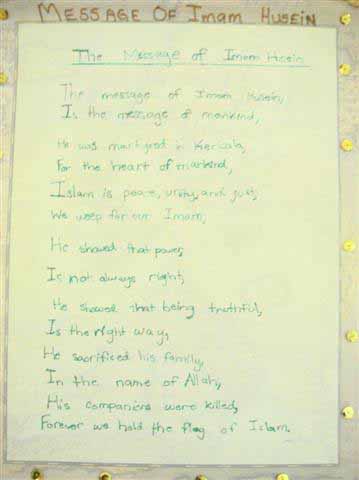 MESSAGE OF Imam HUSEIN
The Message of Imam Husein
The message of Imam Husein,
Is the message of mankind,
He was martyred in Kerbala,
For the heart of mankind,
Islam is peace, unity, and just,
We weep for our Imam,
He showed that power,
Is not always right,
He showed that being truthful,
Is the right way,
He sacrificed his family,
In the name of Allah,
His companions were killed,
Forever we hold the flag of Islam.